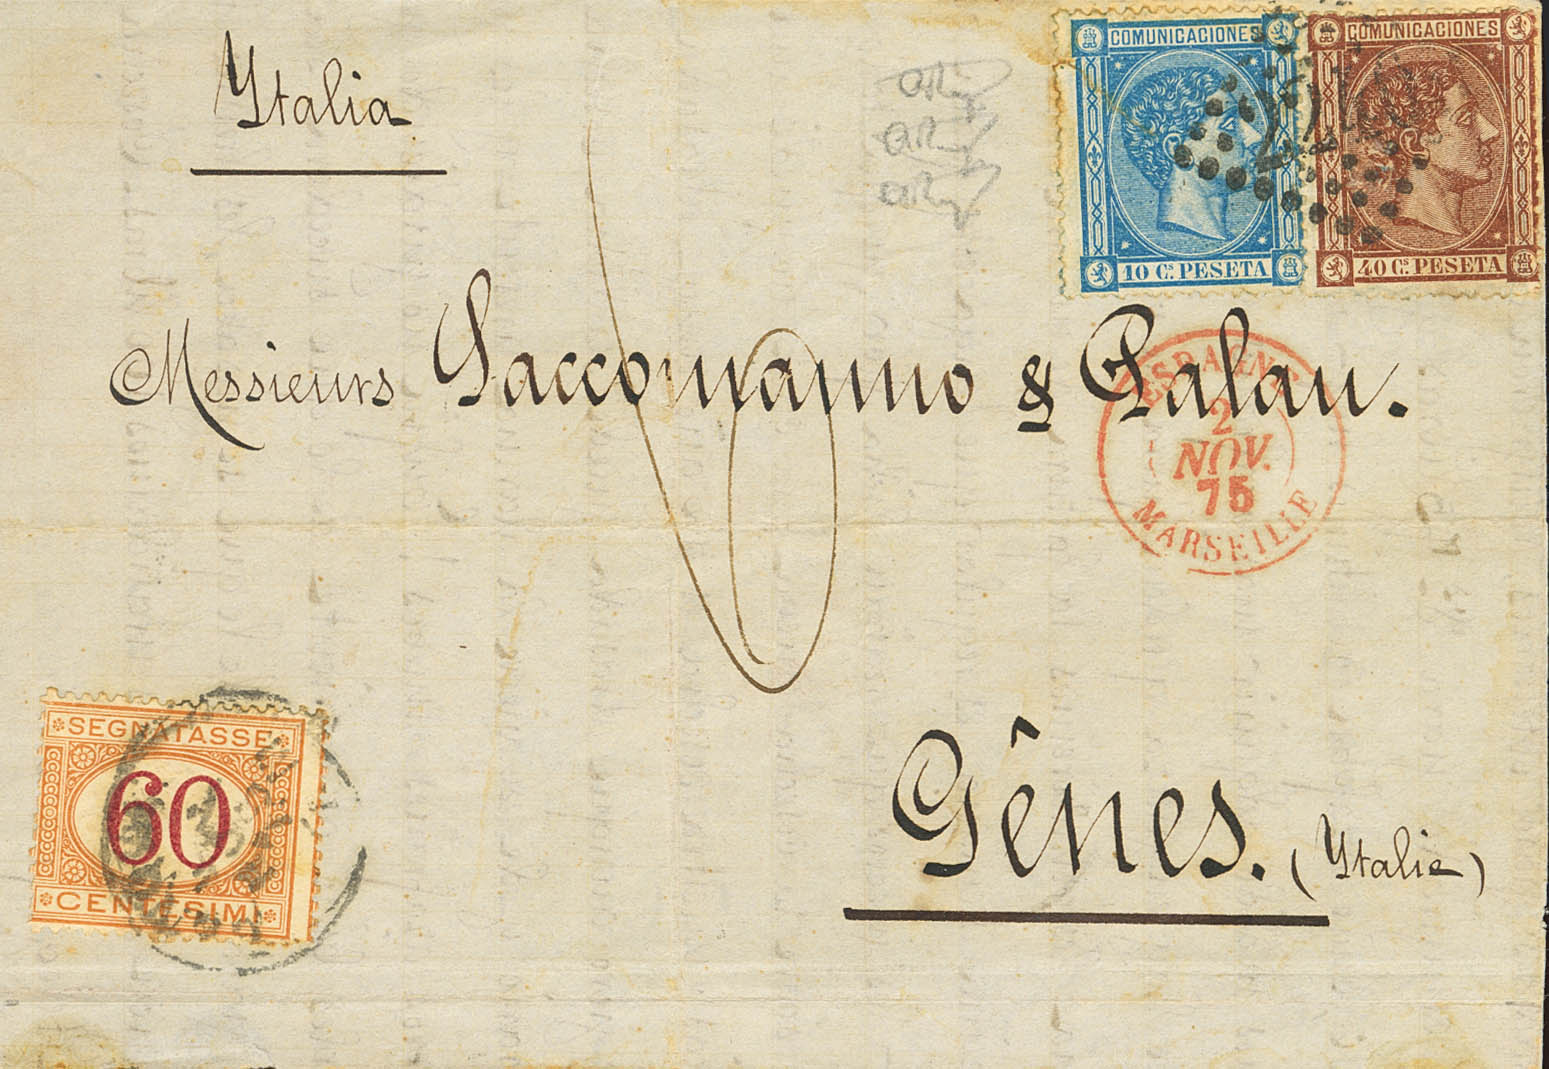 Ytalia
COMUNICACIONES
10 Cs. PESETA
COMUNICACIONES
40 Cs. PESETA
Messieurs Saccomanno & Galau.
ESPAGNE
2
NOV.
75
MARSEILLE
6
SEGNATASSE
60
CENTESIMI
Gênes. (Ytalie)